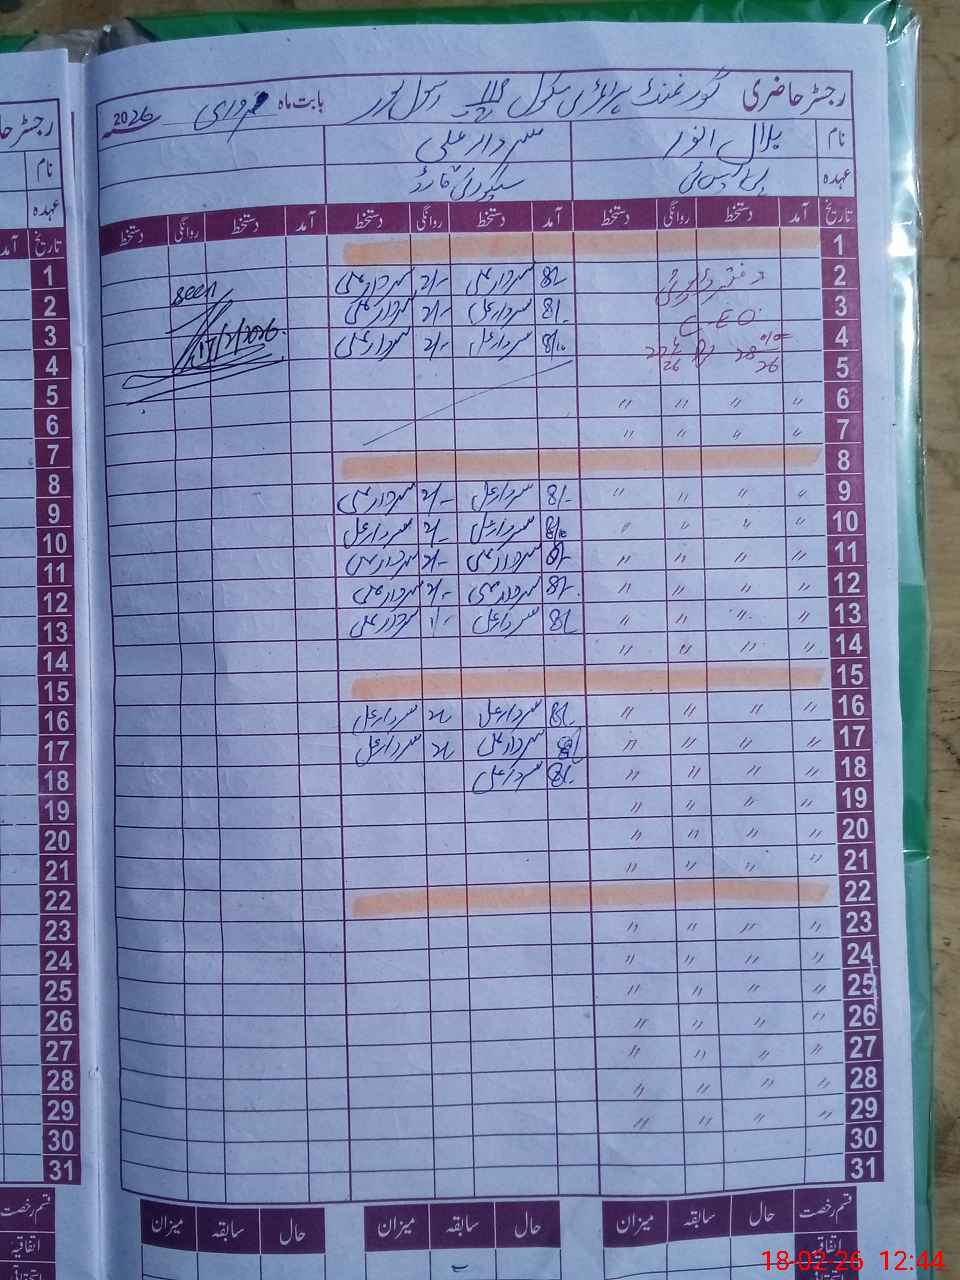 رجسٹر حاضری گورنمنٹ پرائمری سکول 118 رسول پور بابت ماہ فروری 2026
نام بلال انور سردار علی
عہدہ پی ایس ٹی سیکورٹی گارڈ
تاریخ آمد دستخط روانگی دستخط آمد دستخط روانگی دستخط آمد دستخط روانگی دستخط
1
2 8/- سردار علی 2/- سردار علی
Seen
3 8/- سردار علی 2/- سردار علی
C.E.O.
4 8/10 سردار علی 2/- سردار علی 17/2/2026.
5
6 〃 〃 〃 〃
7 〃 〃 〃 〃
8
9 〃 〃 〃 〃 8/- سردار علی 2/- سردار علی
10 〃 〃 〃 〃 8/10 سردار علی 2/- سردار علی
11 〃 〃 〃 〃 8/- سردار علی 2/- سردار علی
12 〃 〃 〃 〃 8/- سردار علی 2/- سردار علی
13 〃 〃 〃 〃 8/- سردار علی 1/- سردار علی
14 〃 〃 〃 〃
15
16 〃 〃 〃 〃 8/- سردار علی 2/- سردار علی
17 〃 〃 〃 〃 سردار علی 2/- سردار علی
18 〃 〃 〃 〃 8/- سردار علی
19 〃 〃 〃 〃
20 〃 〃 〃 〃
21 〃 〃 〃 〃
22
23 〃 〃 〃 〃
24 〃 〃 〃 〃
25 〃 〃 〃 〃
26 〃 〃 〃 〃
27 〃 〃 〃 〃
28 〃 〃 〃 〃
29 〃 〃 〃 〃
30
31
قسم رخصت حال سابقہ میزان حال سابقہ میزان حال سابقہ میزان
اتفاقیہ
18-02-26 12:44
رجسٹر حا
نام
عہدہ
تاریخ آمد
1
2
3
4
5
6
7
8
9
10
11
12
13
14
15
16
17
18
19
20
21
22
23
24
25
26
27
28
29
30
31
قسم رخصت
اتفاقیہ